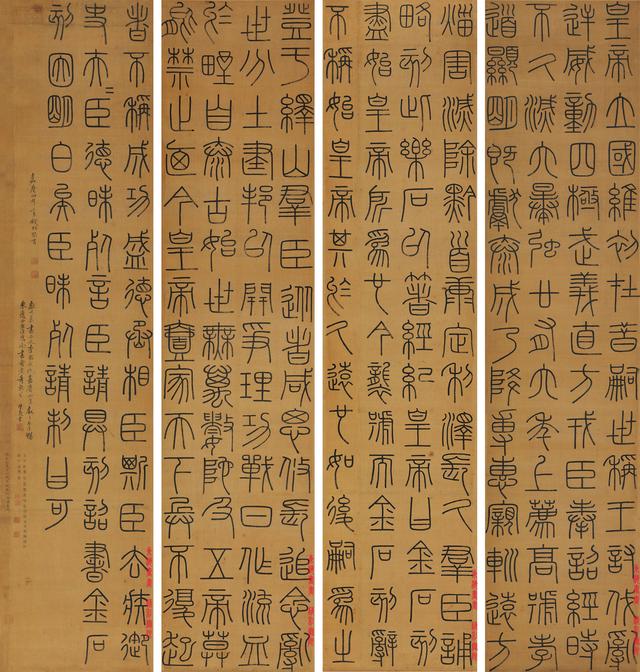 皇帝立國維初在昔嗣世稱王討伐亂
逆威動四極武義直方戎臣奉詔經時
不久滅六暴強廿有六年上薦高號孝
道顯明既獻泰成乃降尃惠寴巡遠方
災害滅除黔首康定利澤長久羣臣誦
略刻此樂石以著經紀皇帝曰金石刻
盡始皇帝所為也今襲號而金石刻辭
不稱始皇帝其於久遠也如後嗣為之
登于繹山羣臣從者咸思攸長追念亂
世分土建邦以開爭理功戰日作流血
於野自泰古始世無萬數陀及五帝莫
能禁止廼今皇帝壹家天下兵不復起
者不稱成功盛德丞相臣斯臣去疾御
史夫臣德昧死言臣請具刻詔書金石
刻因明白矣臣昧死請制曰可